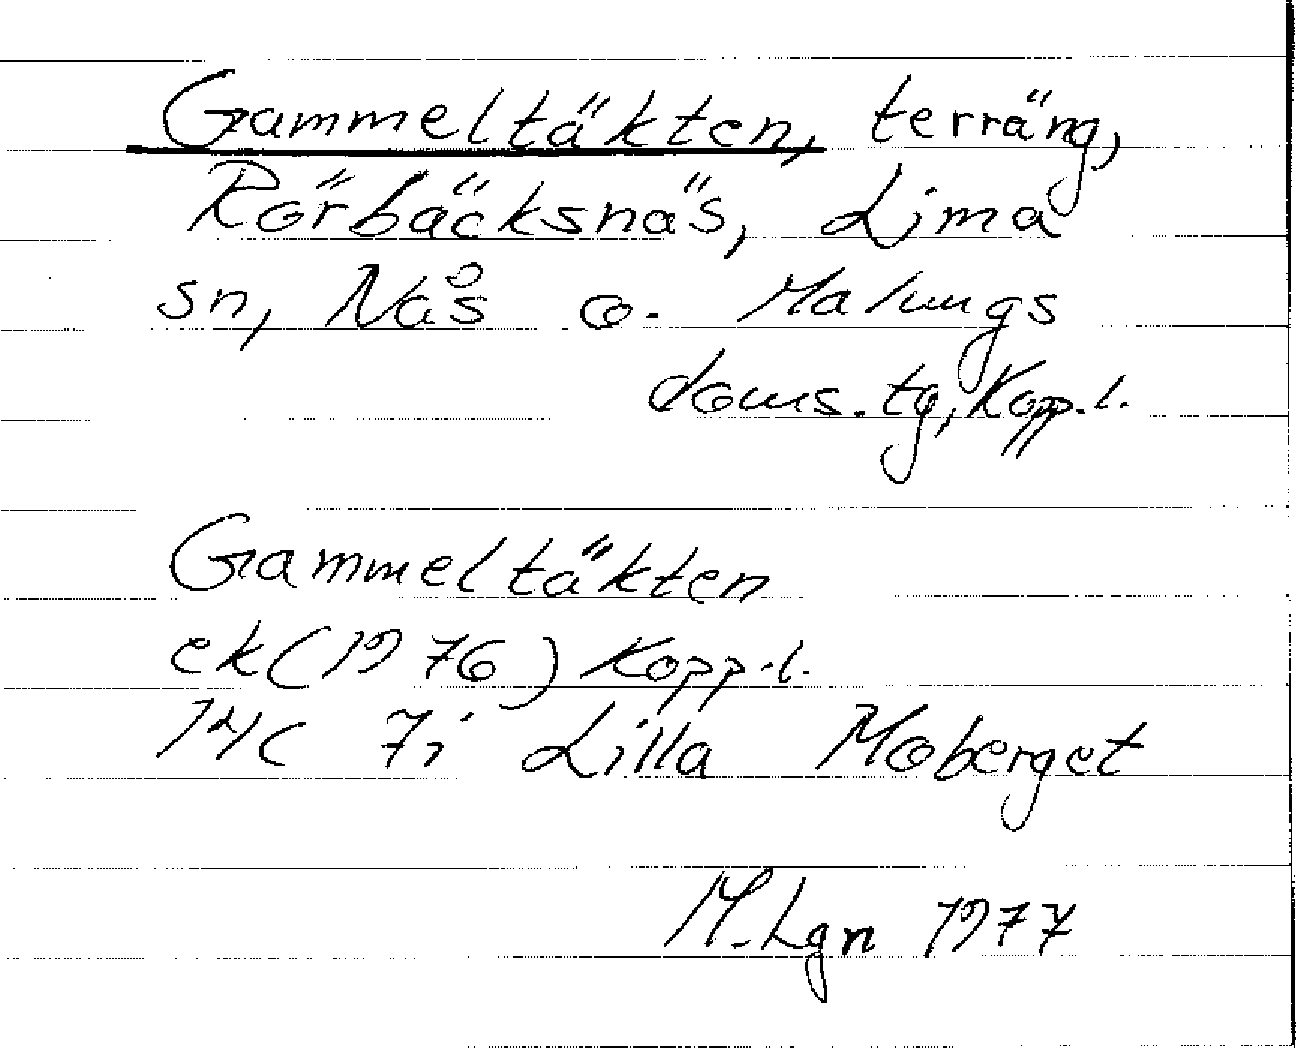 Gammeltäkten, terräng,
Rörbäcksnäs, Lima
sn, Nås o. Malungs
doms. tg, Kopp.l.
Gammeltäkten
ek(1976) Kopp.l.
14C 7i Lilla Moberget
M.Lgn 1977